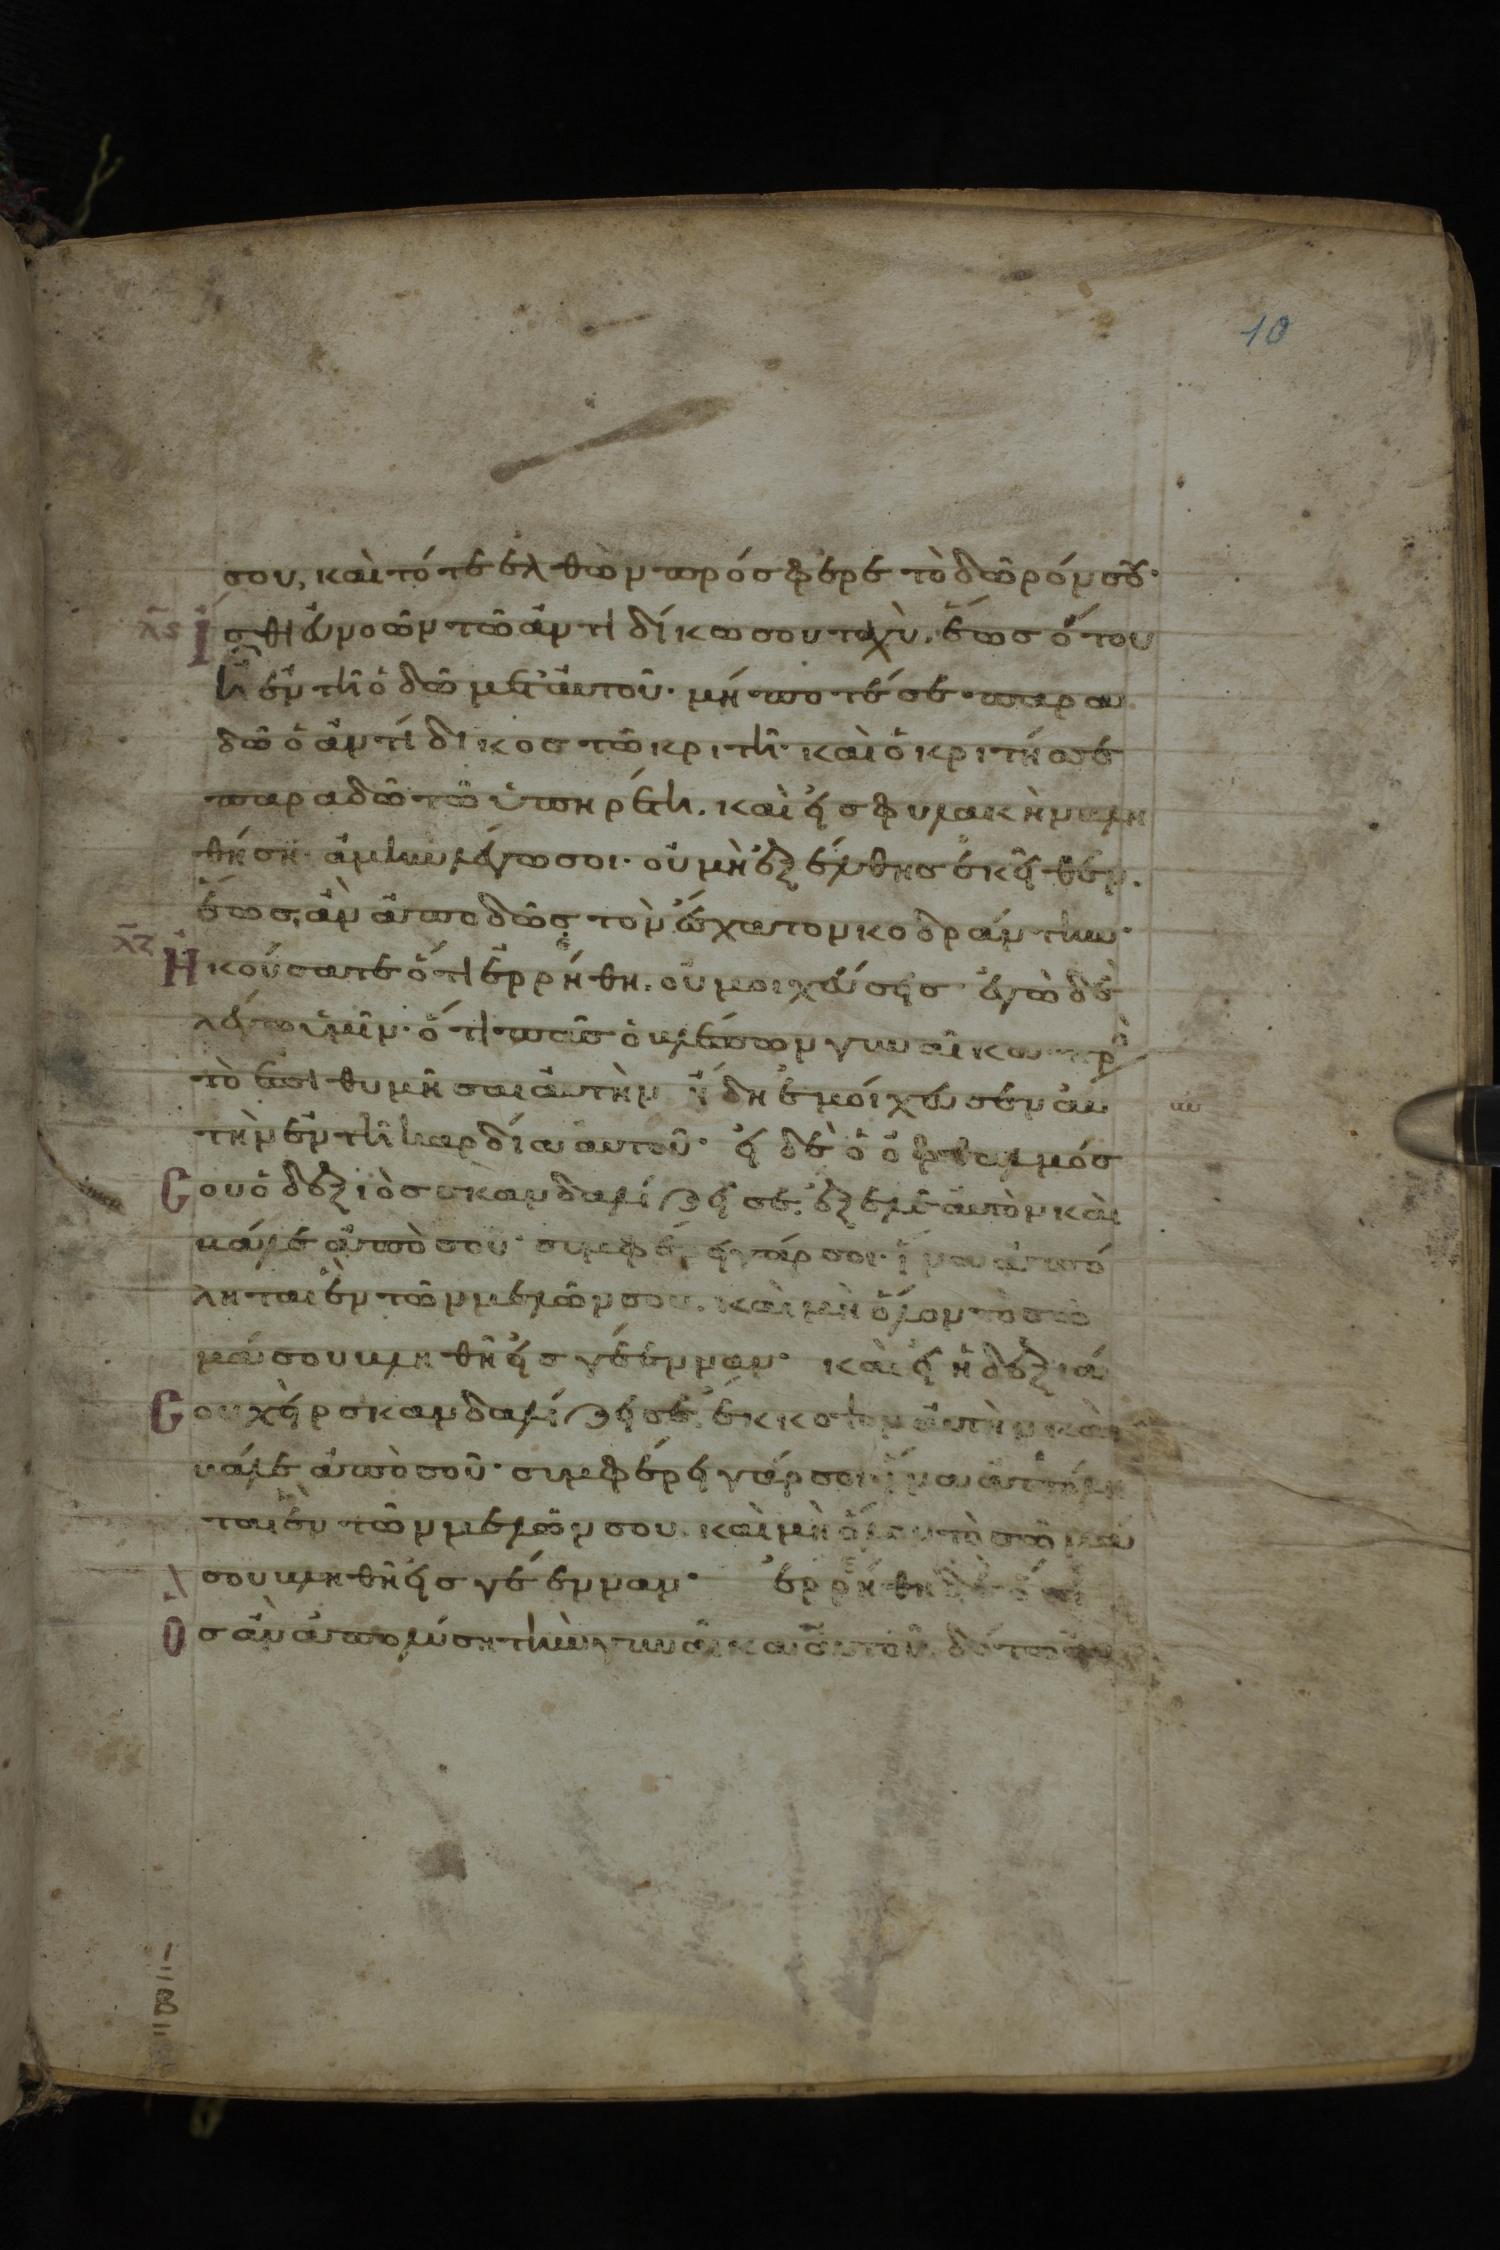 10
σου, καὶ τότε ἐλθὼν πρόσφερε τὸ δῶρόν σου·
λϛ Ἴσθι ἐυνοῶν τῶ ἀντιδίκω σου ταχὺ. ἕως ὅτου
ἧ ἐν τῆ ὁδῶ μετ' ἀυτοῦ· μή ποτέ σε παρα
δῶ ὁ ἀντίδικος τῶ κριτῆ· καὶ ὁ κριτής σε
παραδῶ τῶ ὑπηρέτη. καὶ εἰς φυλακὴν βλη
θήση· ἀμὴν λέγω σοι· οὐ μὴ ἐξέλθης ἐκεῖθεν.
ἕως ἀν ἀποδῶς τὸν ἔσχατον κοδράντην·
λζ Ἠκούσατε ὅτι ἐρρήθη. οὐ μοιχεύσεις· ἐγὼ δὲ
λέγω ὑμῖν· ὅτι πᾶς ὁ βλέπων γυναῖκα πρὸς
τὸ ἐπιθυμῆσαι ἀυτὴν ἤδη ἐμοίχευσεν ἀυ
τὴν ἐν τῆ καρδία ἀυτοῦ· εἰ δὲ ὁ ὀφθαλμός
Σου ὁ δεξιὸς σκανδαλίζει σε. ἔξελε ἀυτὸν καὶ
βάλε ἀπὸ σοῦ· συμφέρει γάρ σοι· ἵνα ἀπό
ληται ἓν τῶν μελῶν σου. καὶ μὴ ὅλον τὸ σῶ
μά σου βληθῆ εἰς γέενναν· καὶ εἰ ἡ δεξιά
Σου χεὶρ σκανδαλίζει σε. ἔκκοψον ἀυτὴν καὶ
βάλε ἀπὸ σοῦ· συμφέρει γάρ σοι ἵνα ἀπόλη
ται ἓν τῶν μελῶν σου. καὶ μὴ ὅλον τὸ σῶμά
σου βληθῆ εἰς γέενναν· ἐρρήθη δὲ ὅτι
Ὃς ἀν ἀπολύση τὴν γυναῖκα ἀυτοῦ. δότω